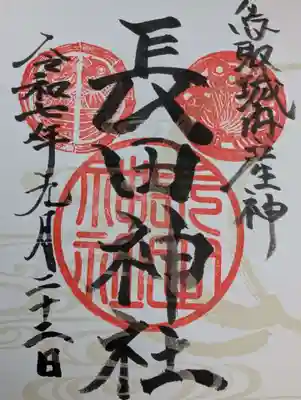 鳥取城内産神
長田神社
令和三年九月二十三日